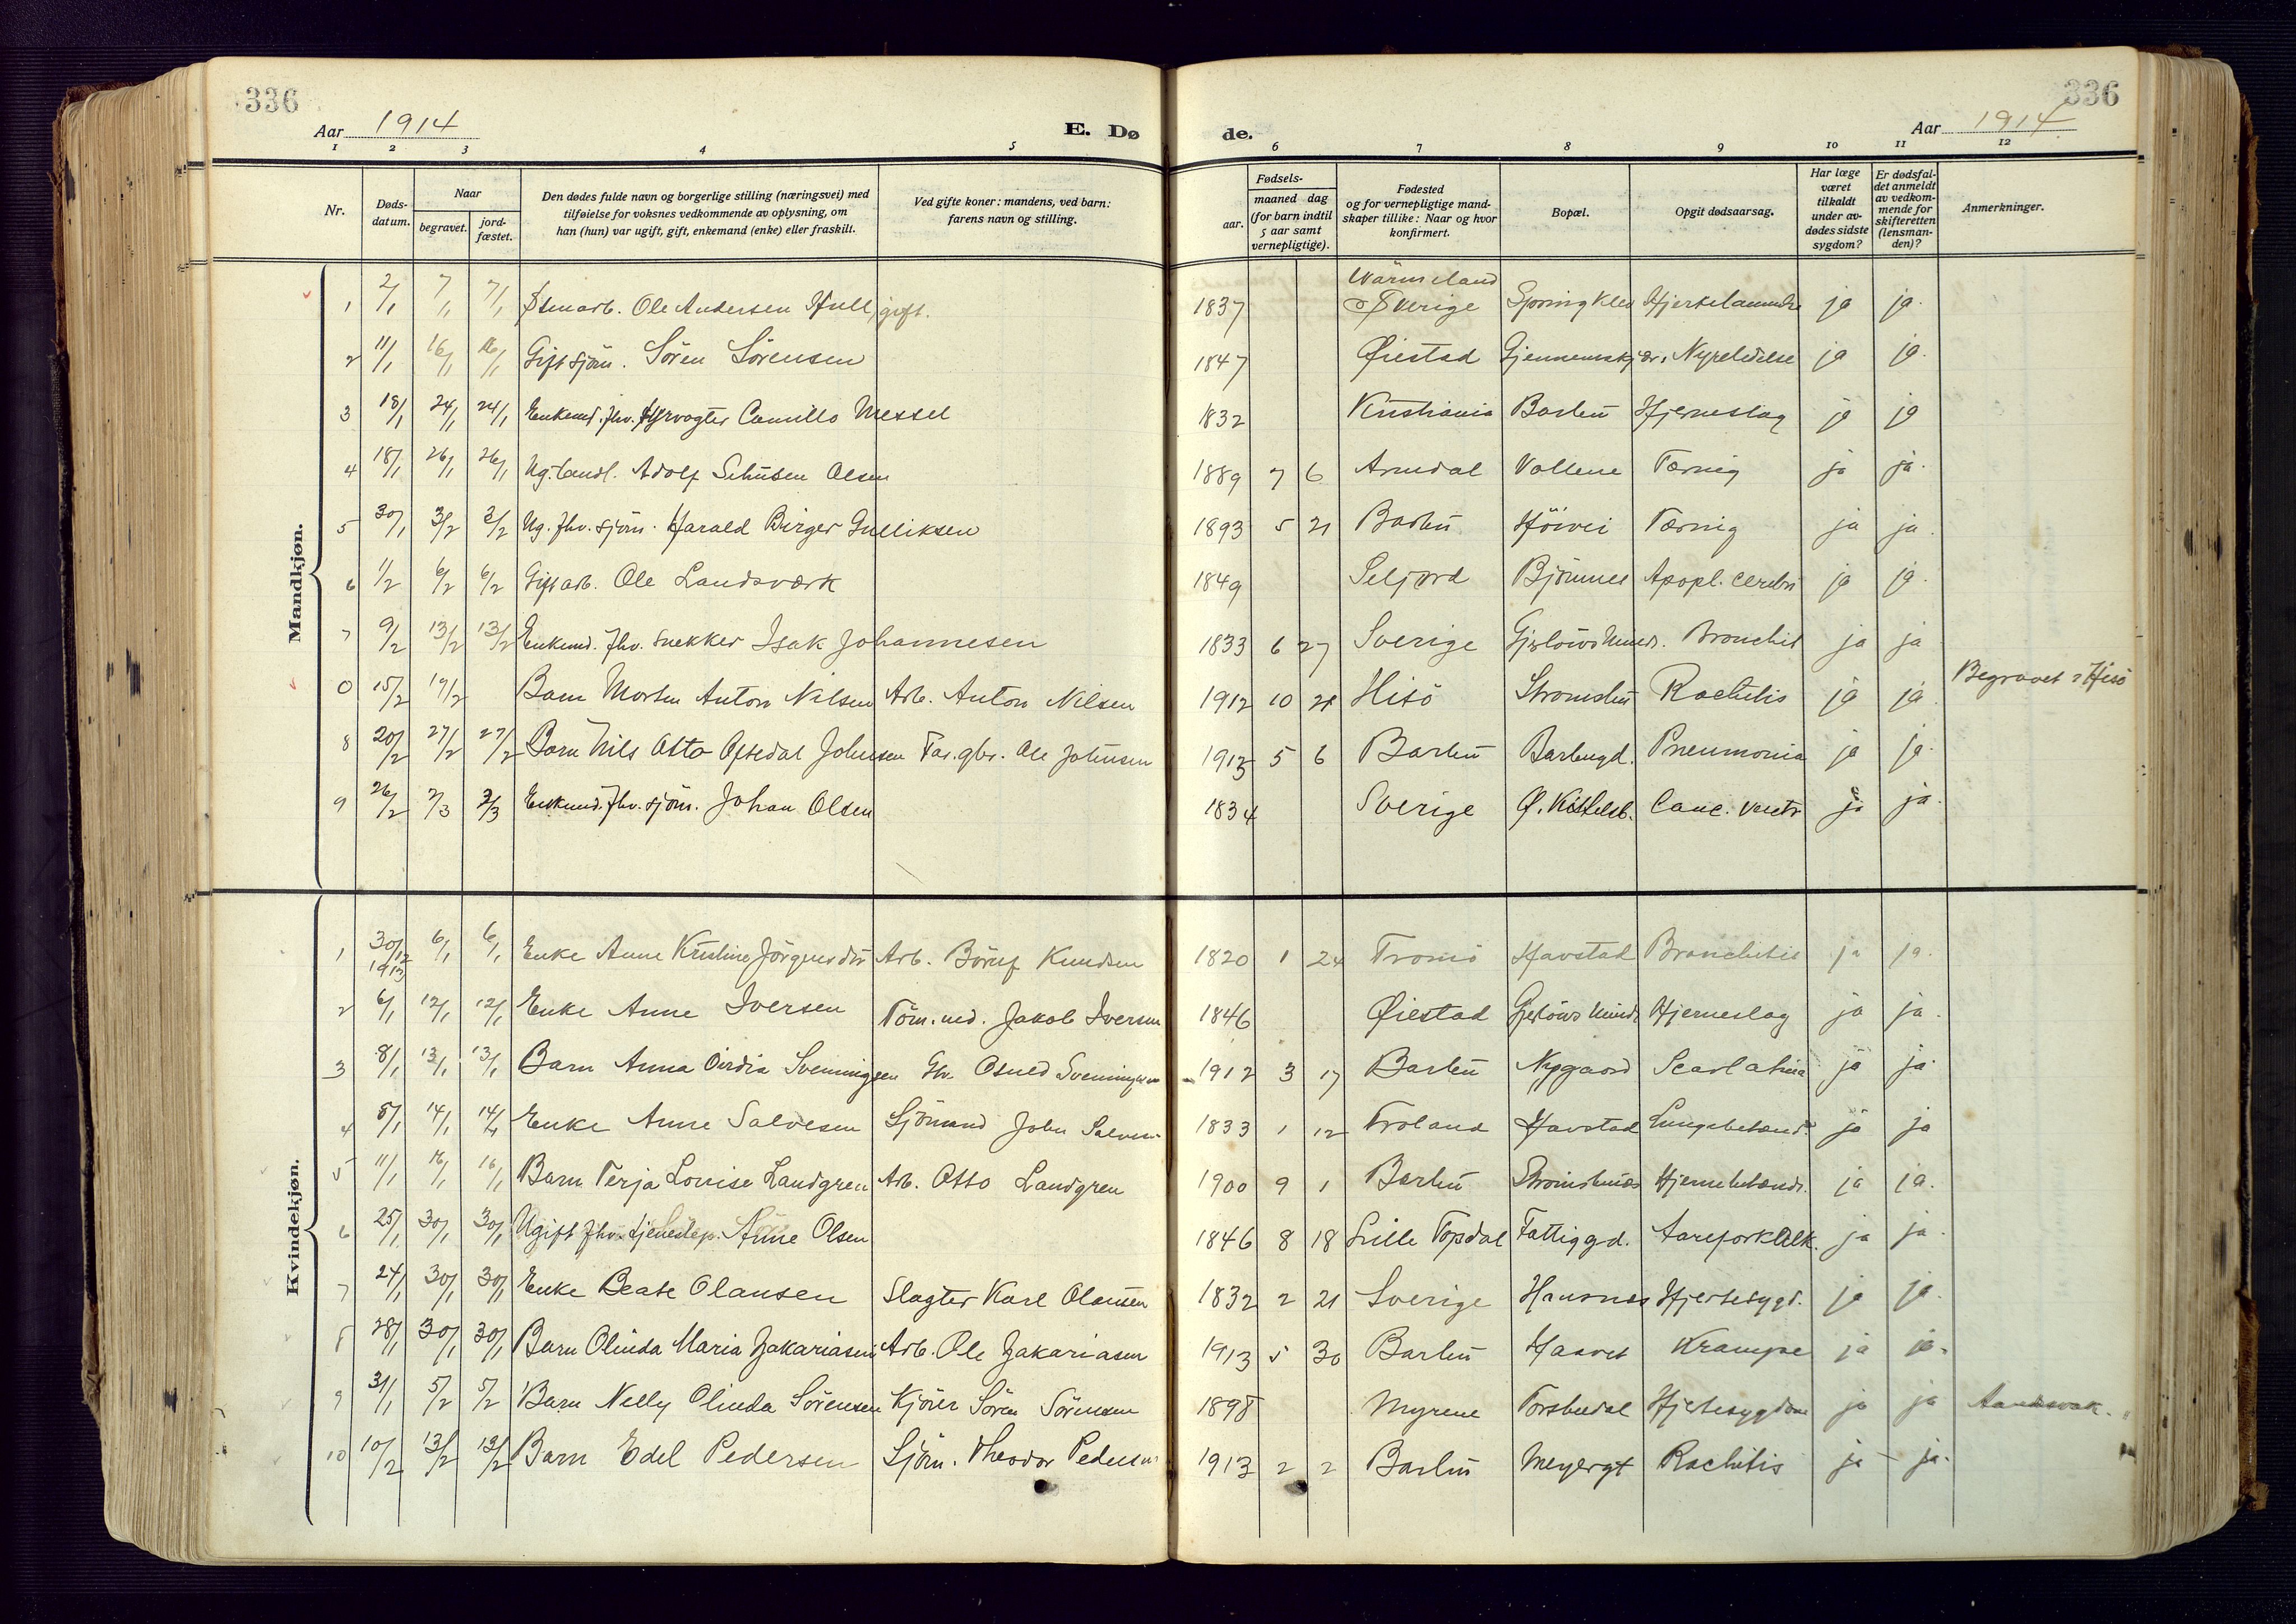 336
336
Aar 1914
E. Dø
de.
Aar 1914
1 2 3 4 5 6 7 8 9 10 11 12
Nr.
Døds-
datum.
Naar
begravet.
jord-
fæstet.
Den dødes fulde navn og borgerlige stilling (næringsvei) med
tilføielse for voksnes vedkommende av oplysning, om
han (hun) var ugift, gift, enkemand (enke) eller fraskilt.
Ved gifte koner: mandens, ved barn:
farens navn og stilling.
Fødsels-
aar.
maaned dag
(for barn indtil
5 aar samt
vernepligtige).
Fødested
og for vernepligtige mand-
skaper tillike: Naar og hvor
konfirmert.
Bopæl.
Opgit dødsaarsag.
Har læge
været
tilkaldt
under av-
dødes sidste
sygdom?
Er dødsfal-
det anmeldt
av vedkom-
mende for
skifteretten
(lensman-
den)?
Anmerkninger.
Mandkjøn.
Wärmeland
1 2/1 7/1 7/1 Stenarb. Ole Andersen Hull, gift. 1837 Sverige Springklev ja ja.
2 11/1 16/1 16/1 Gift sjøm. Sören Sörensen 1847 Øiestad Gjennemskjær. Nyrelidelse ja ja.
3 18/1 24/1 24/1 Enkemd. fhv. Fyrvogter Camillo Wessel 1832 Kristiania Barbu Hjerneslag ja ja
4 18/1 26/1 26/1 Ug. Adolf Schüsen Olsen 1889 7 6 Arendal Vollene Tæring ja ja.
5 30/1 3/2 3/2 Ug. fhv. sjöm. Harald Birger Gulliksen 1893 5 21 Barbu Höivei Tæring ja ja.
6 1/2 6/2 6/2 Gift arb. Ole Landsværk 1849 Seljord Björnnes Apopl. cerebri ja ja.
7 9/2 13/2 13/2 Enkemd. fhv. snekker Isak Johannesen 1833 6 27 Sverige Gjerlöws Minde. Bronchit ja ja
0 15/2 19/2 Barn Morten Anton Nilsen Arb. Anton Nilsen 1912 10 28 Hisö Strömsbu Rachitis ja ja. Begravet i Hisö
8 20/2 27/2 27/2 Barn Nils Otto Oftedal Johnsen Fas. gbr. Ole Johnsen 1913 5 6 Barbu Barbugd. Pneumonia ja ja.
9 26/2 2/3 2/3 Enkemd. fhv. sjöm. Johan Olsen 1834 Sverige Ø. Kittelsb. Canc. ventr ja ja.
Kvindekjøn.
1 30/12 1913 6/1 6/1 Enke Anne Kristine Jörgensdtr Arb. Knudsen 1820 1 24 Tromö Havstad Bronchitis ja ja.
2 6/1 12/1 12/1 Enke Anne Iversen Töm.md. Jakob Iversen 1846 Øiestad Gjerlöws Minde Hjerneslag ja ja.
3 8/1 13/1 13/1 Barn Anna Svenningsen Osuld Svenningsen 1912 3 17 Barbu Nygaard Scarlatina ja ja.
4 8/1 14/1 14/1 Enke Anne Salvesen Sjömand John Salvesen 1833 1 12 Froland Havstad Lungebetænd. ja ja
5 11/1 16/1 16/1 Barn Terja Lovise Landgren Arb. Otto Landgren 1900 9 1 Barbu Strömsbunes Hjernebetænd. ja ja.
6 25/1 30/1 30/1 Ugift fhv. tjenestep. Anne Olsen 1846 8 18 Lille Topdal Fattiggd. Aareforkalk. ja ja.
7 24/1 30/1 30/1 Enke Beate Olausen Slagter Karl Olausen 1832 2 21 Sverige Hansnes Hjertesygd. ja ja.
8 28/1 30/1 30/1 Barn Olinda Maria Zakariasen Arb. Ole Zakariasen 1913 5 30 Barbu Haavet Krampe ja ja.
9 31/1 5/2 5/2 Barn Nelly Olinda Sörensen Kjörer Sören Sörensen 1898 Myrene Torsbudal Hjertesygdom ja ja Aandssvak.
10 10/2 13/2 13/2 Barn Edel Pedersen Sjöm. Theodor Pedersen 1913 2 2 Barbu Meyergt Rachitis ja ja.